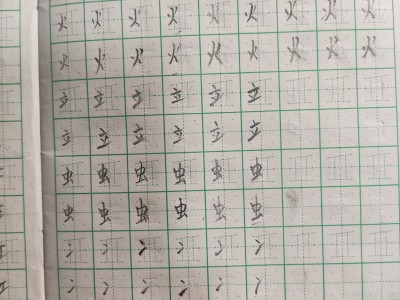 火火火火火火火火火
火火火火火火火火火
立立立立立立
立立立立立立
虫虫虫虫虫虫
虫虫虫虫虫虫
冫冫冫冫冫冫
冫冫冫冫冫冫